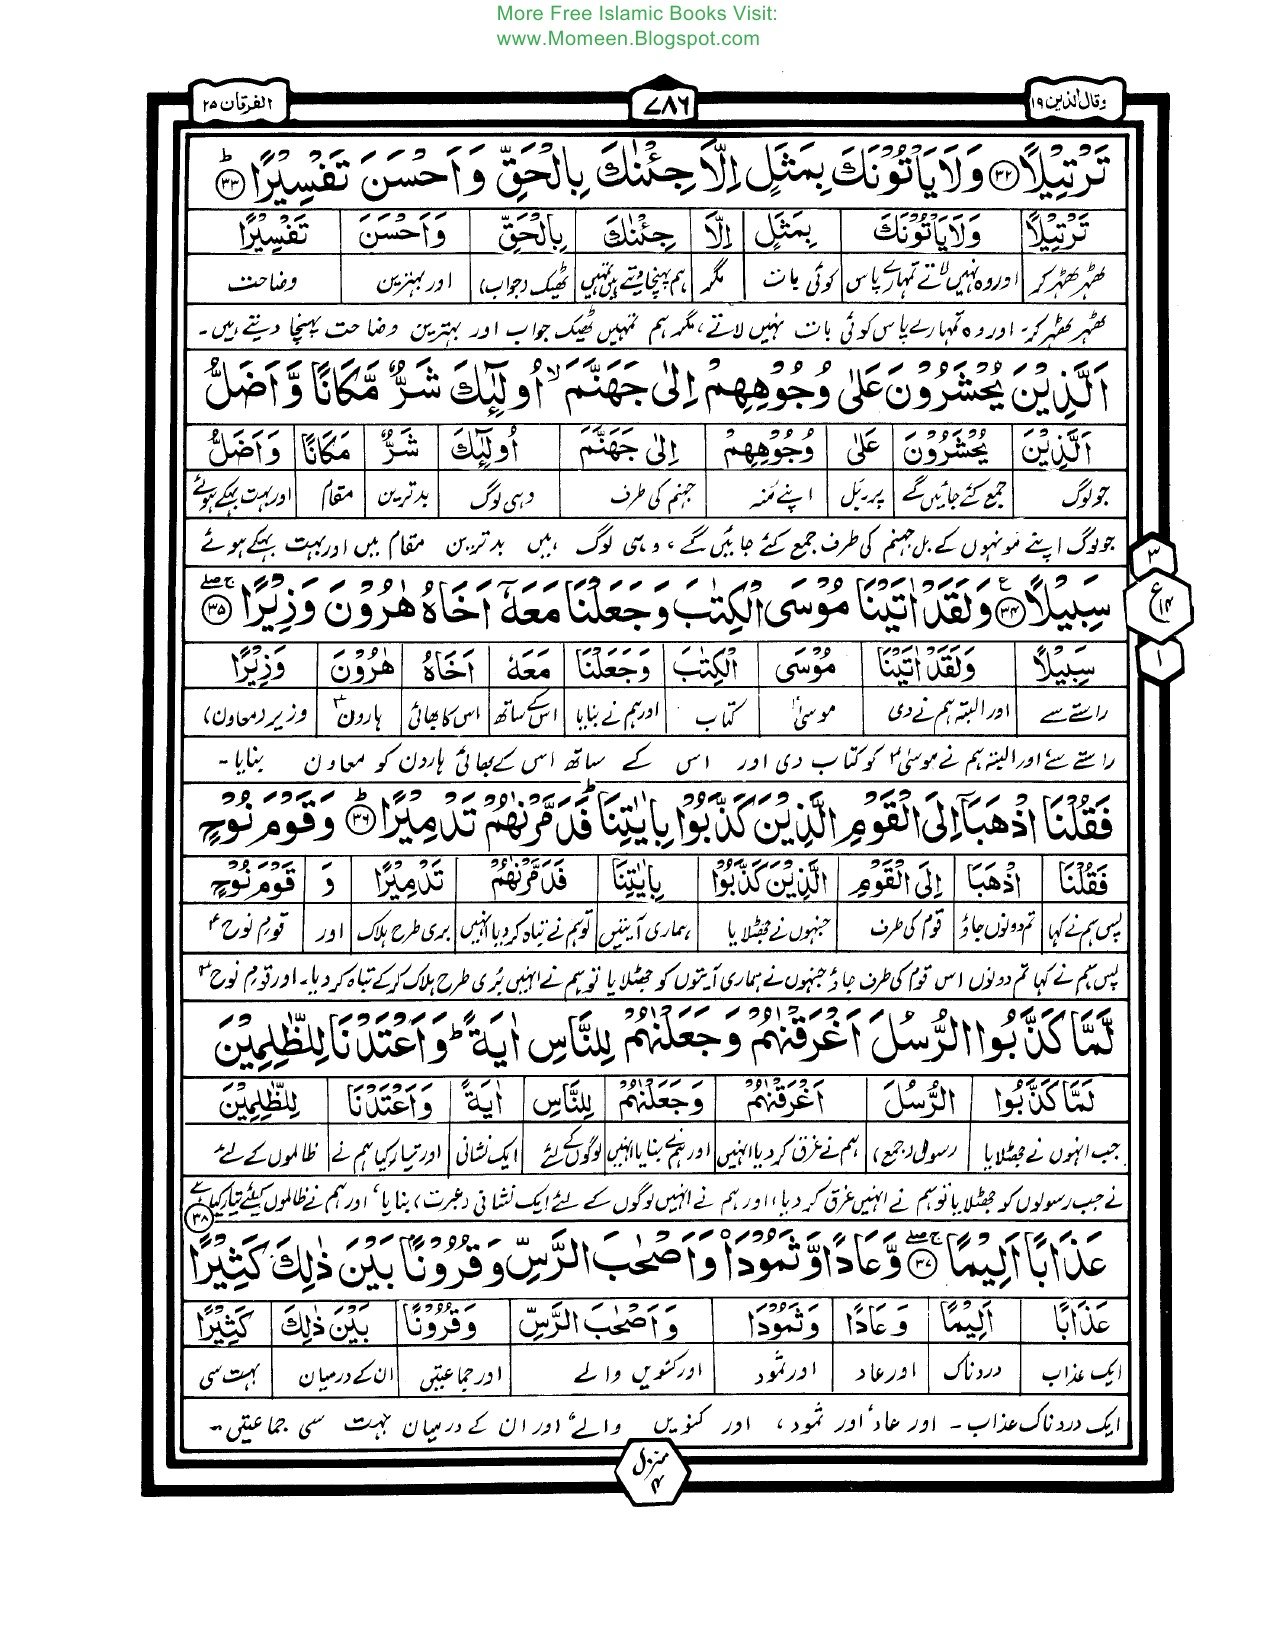 More Free Islamic Books Visit:
www.Momeen.Blogspot.com
وقال الذین ۱۹
۷۸۶
الفرقان ۲۵
تَرْتِیْلًا ﴿۳۲﴾ وَلَا یَاْتُوْنَكَ بِمَثَلٍ اِلَّا جِئْنٰكَ بِالْحَقِّ وَاَحْسَنَ تَفْسِیْرًا ﴿۳۳﴾ ؕ
تَرْتِیْلًا وَلَا یَاْتُوْنَكَ بِمَثَلٍ اِلَّا جِئْنٰكَ بِالْحَقِّ وَاَحْسَنَ تَفْسِیْرًا
ٹھہر ٹھہر کر اور وہ نہیں لاتے تمہارے پاس کوئی بات مگر ہم پہنچا دیتے ہیں تمہیں ٹھیک (جواب) اور بہترین وضاحت
ٹھہر ٹھہر کر۔ اور وہ تمہارے پاس کوئی بات نہیں لاتے، مگر ہم تمہیں ٹھیک جواب اور بہترین وضاحت پہنچا دیتے ہیں۔
اَلَّذِیْنَ یُحْشَرُوْنَ عَلٰی وُجُوْهِهِمْ اِلٰی جَهَنَّمَ ۙ اُولٰٓئِكَ شَرٌّ مَّكَانًا وَّاَضَلُّ
اَلَّذِیْنَ یُحْشَرُوْنَ عَلٰی وُجُوْهِهِمْ اِلٰی جَهَنَّمَ اُولٰٓئِكَ شَرٌّ مَكَانًا وَاَضَلُّ
جو لوگ جمع کئے جائیں گے پر۔بَل اپنے مُنہ جہنم کی طرف وہی لوگ بدترین مقام اور بہت بہکے ہوئے
جو لوگ اپنے مونہوں کے بل جہنم کی طرف جمع کئے جائیں گے، وہی لوگ ہیں بدترین مقام میں اور بہت بہکے ہوئے
۳
ع ۱۴
۱
سَبِیْلًا ﴿۳۴﴾ ع وَلَقَدْ اٰتَیْنَا مُوْسَی الْكِتٰبَ وَجَعَلْنَا مَعَهٗۤ اَخَاهُ هٰرُوْنَ وَزِیْرًا ﴿۳۵﴾ ۚۖ
سَبِیْلًا وَلَقَدْ اٰتَیْنَا مُوْسَی الْكِتٰبَ وَجَعَلْنَا مَعَهٗ اَخَاهُ هٰرُوْنَ وَزِیْرًا
راستے سے اور البتہ ہم نے دی موسیٰ کتاب اور ہم نے بنایا اس کے ساتھ اس کا بھائی ہارونؑ وزیر (معاون)
راستے سے اور البتہ ہم نے موسیٰؑ کو کتاب دی اور اس کے ساتھ اس کے بھائی ہارون کو معاون بنایا۔
فَقُلْنَا اذْهَبَاۤ اِلَی الْقَوْمِ الَّذِیْنَ كَذَّبُوْا بِاٰیٰتِنَا ؕ فَدَمَّرْنٰهُمْ تَدْمِیْرًا ﴿۳۶﴾ ؕ وَقَوْمَ نُوْحٍ
فَقُلْنَا اذْهَبَا اِلَی الْقَوْمِ الَّذِیْنَ كَذَّبُوْا بِاٰیٰتِنَا فَدَمَّرْنٰهُمْ تَدْمِیْرًا وَ قَوْمَ نُوْحٍ
پس ہم نے کہا تم دونوں جاؤ قوم کی طرف جنہوں نے جھٹلایا ہماری آیتیں تو ہم نے تباہ کر دیا انہیں بری طرح ہلاک اور قوم نوحؑ
پس ہم نے کہا تم دونوں اس قوم کی طرف جاؤ جنہوں نے ہماری آیتوں کو جھٹلایا تو ہم نے انہیں بُری طرح ہلاک کر کے تباہ کر دیا۔ اور قوم نوحؑ
لَّمَّا كَذَّبُوا الرُّسُلَ اَغْرَقْنٰهُمْ وَجَعَلْنٰهُمْ لِلنَّاسِ اٰیَةً ؕ وَاَعْتَدْنَا لِلظّٰلِمِیْنَ
لَمَّا كَذَّبُوا الرُّسُلَ اَغْرَقْنٰهُمْ وَجَعَلْنٰهُمْ لِلنَّاسِ اٰیَةً وَاَعْتَدْنَا لِلظّٰلِمِیْنَ
جب انہوں نے جھٹلایا رسول (جمع) ہم نے غرق کر دیا انہیں اور ہم نے بنایا انہیں لوگوں کے لئے ایک نشانی اور تیار کیا ہم نے ظالموں کے لئے
نے جب رسولوں کو جھٹلایا تو ہم نے انہیں غرق کر دیا، اور ہم نے انہیں لوگوں کے لئے ایک نشانی (عبرت) بنایا، اور ہم نے ظالموں کیلئے تیار کیا ہے
عَذَابًا اَلِیْمًا ﴿۳۷﴾ ۚۖ وَّعَادًا وَّثَمُوْدَا۟ وَاَصْحٰبَ الرَّسِّ وَقُرُوْنًۢا بَیْنَ ذٰلِكَ كَثِیْرًا ﴿۳۸﴾
عَذَابًا اَلِیْمًا وَعَادًا وَثَمُوْدَا وَاَصْحٰبَ الرَّسِّ وَقُرُوْنًا بَیْنَ ذٰلِكَ كَثِیْرًا
ایک عذاب دردناک اور عاد اور ثمود اور کنویں والے اور جماعتیں ان کے درمیان بہت سی
ایک دردناک عذاب۔ اور عاد اور ثمود، اور کنویں والے اور ان کے درمیان بہت سی جماعتیں۔
منزل ۴